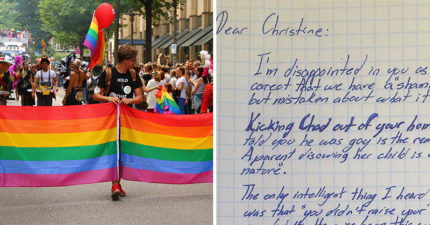 Dear Christine:
I'm disappointed in you as
correct that we have
but mistaken about what it
Kicking Chad out of your hom
told you he was gay is the rea
Apparent disowing her child is
nature".
The only intelligent thing I heard
was that "you didn't raise your